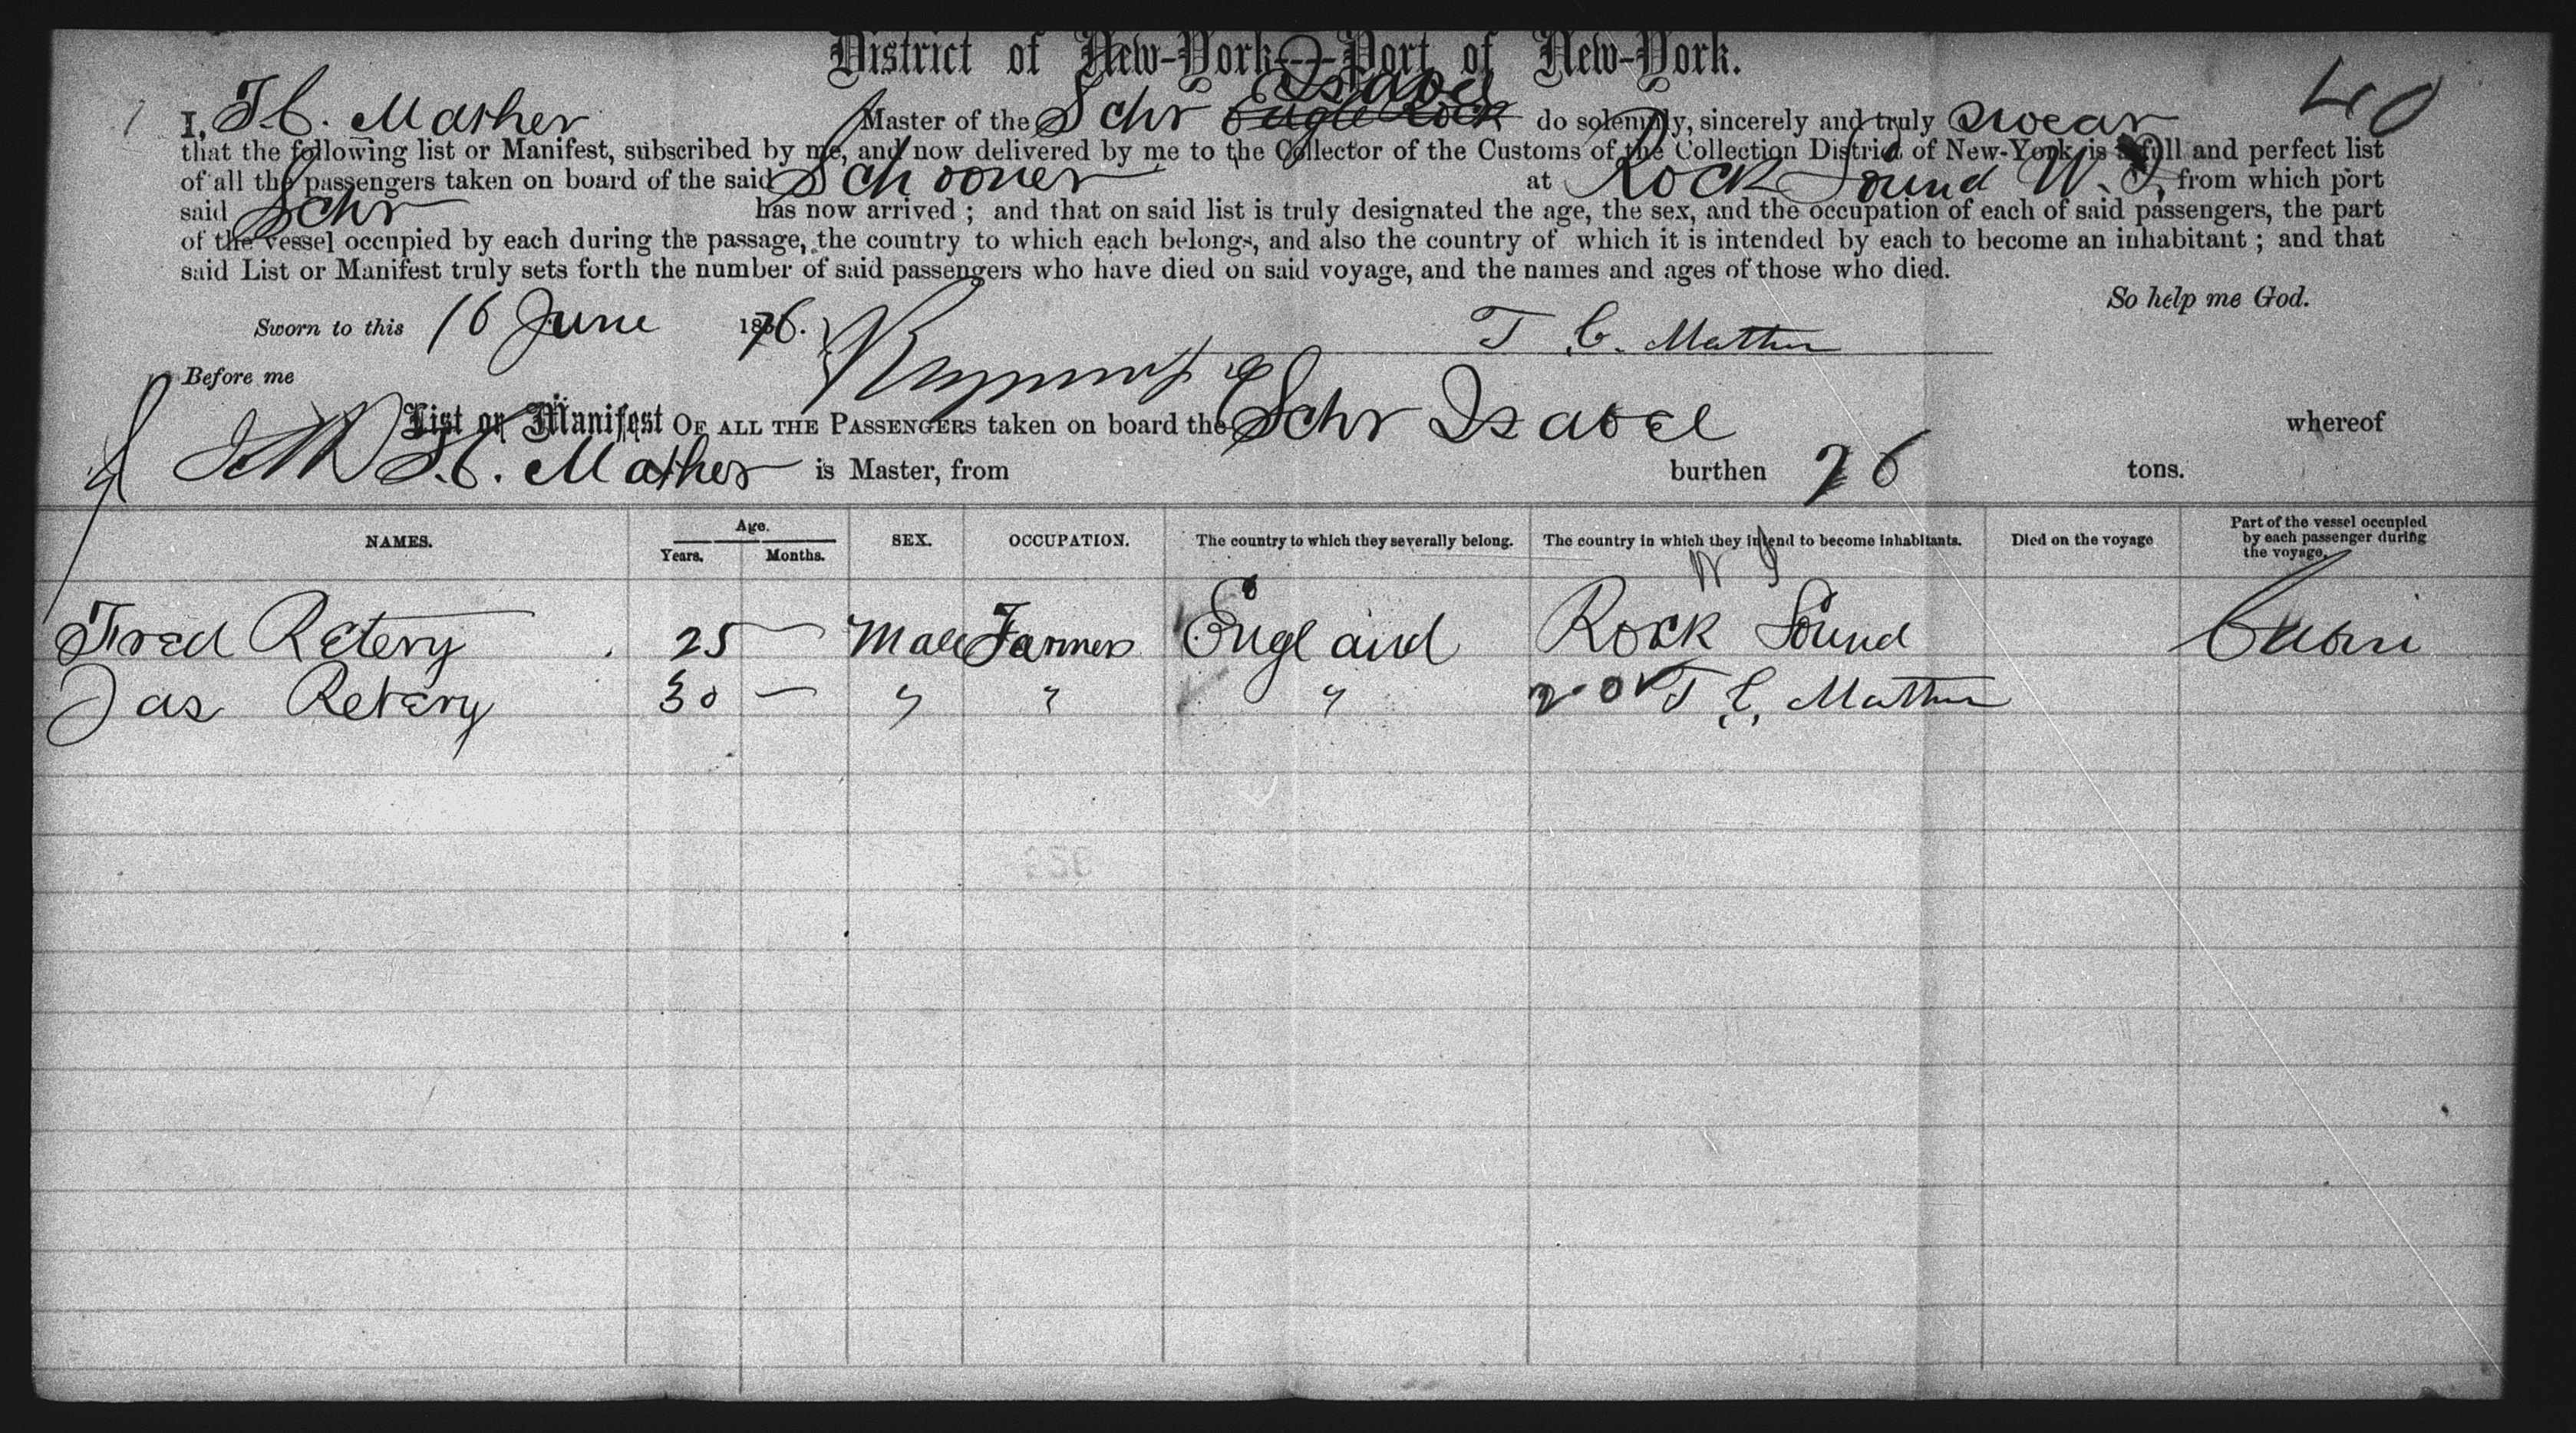 District of New-York—Port of New-York.
40
Isabel
I, T. C. Mather Master of the Schr Eagle Rock do solemnly, sincerely and truly swear
that the following list or Manifest, subscribed by me, and now delivered by me to the Collector of the Customs of the Collection District of New-York, is a full and perfect list
of all the passengers taken on board of the said Schooner at Rock Sound W. I, from which port
said Schr has now arrived ; and that on said list is truly designated the age, the sex, and the occupation of each of said passengers, the part
of the vessel occupied by each during the passage, the country to which each belongs, and also the country of which it is intended by each to become an inhabitant ; and that
said List or Manifest truly sets forth the number of said passengers who have died on said voyage, and the names and ages of those who died.
So help me God.
Sworn to this 16 June 1876. T C. Mather
Before me
List or Manifest OF ALL THE PASSENGERS taken on board the Schr Isabel whereof
T. C. Mather is Master, from burthen 76 tons.
NAMES. Age. Years. Months. SEX. OCCUPATION. The country to which they severally belong. The country in which they intend to become inhabitants. Died on the voyage Part of the vessel occupied by each passenger during the voyage.
W I
Fred Retery 25 — Male Farmer England Rock Sound Cabin
Jas Retery 30 — " " " T C. Mather